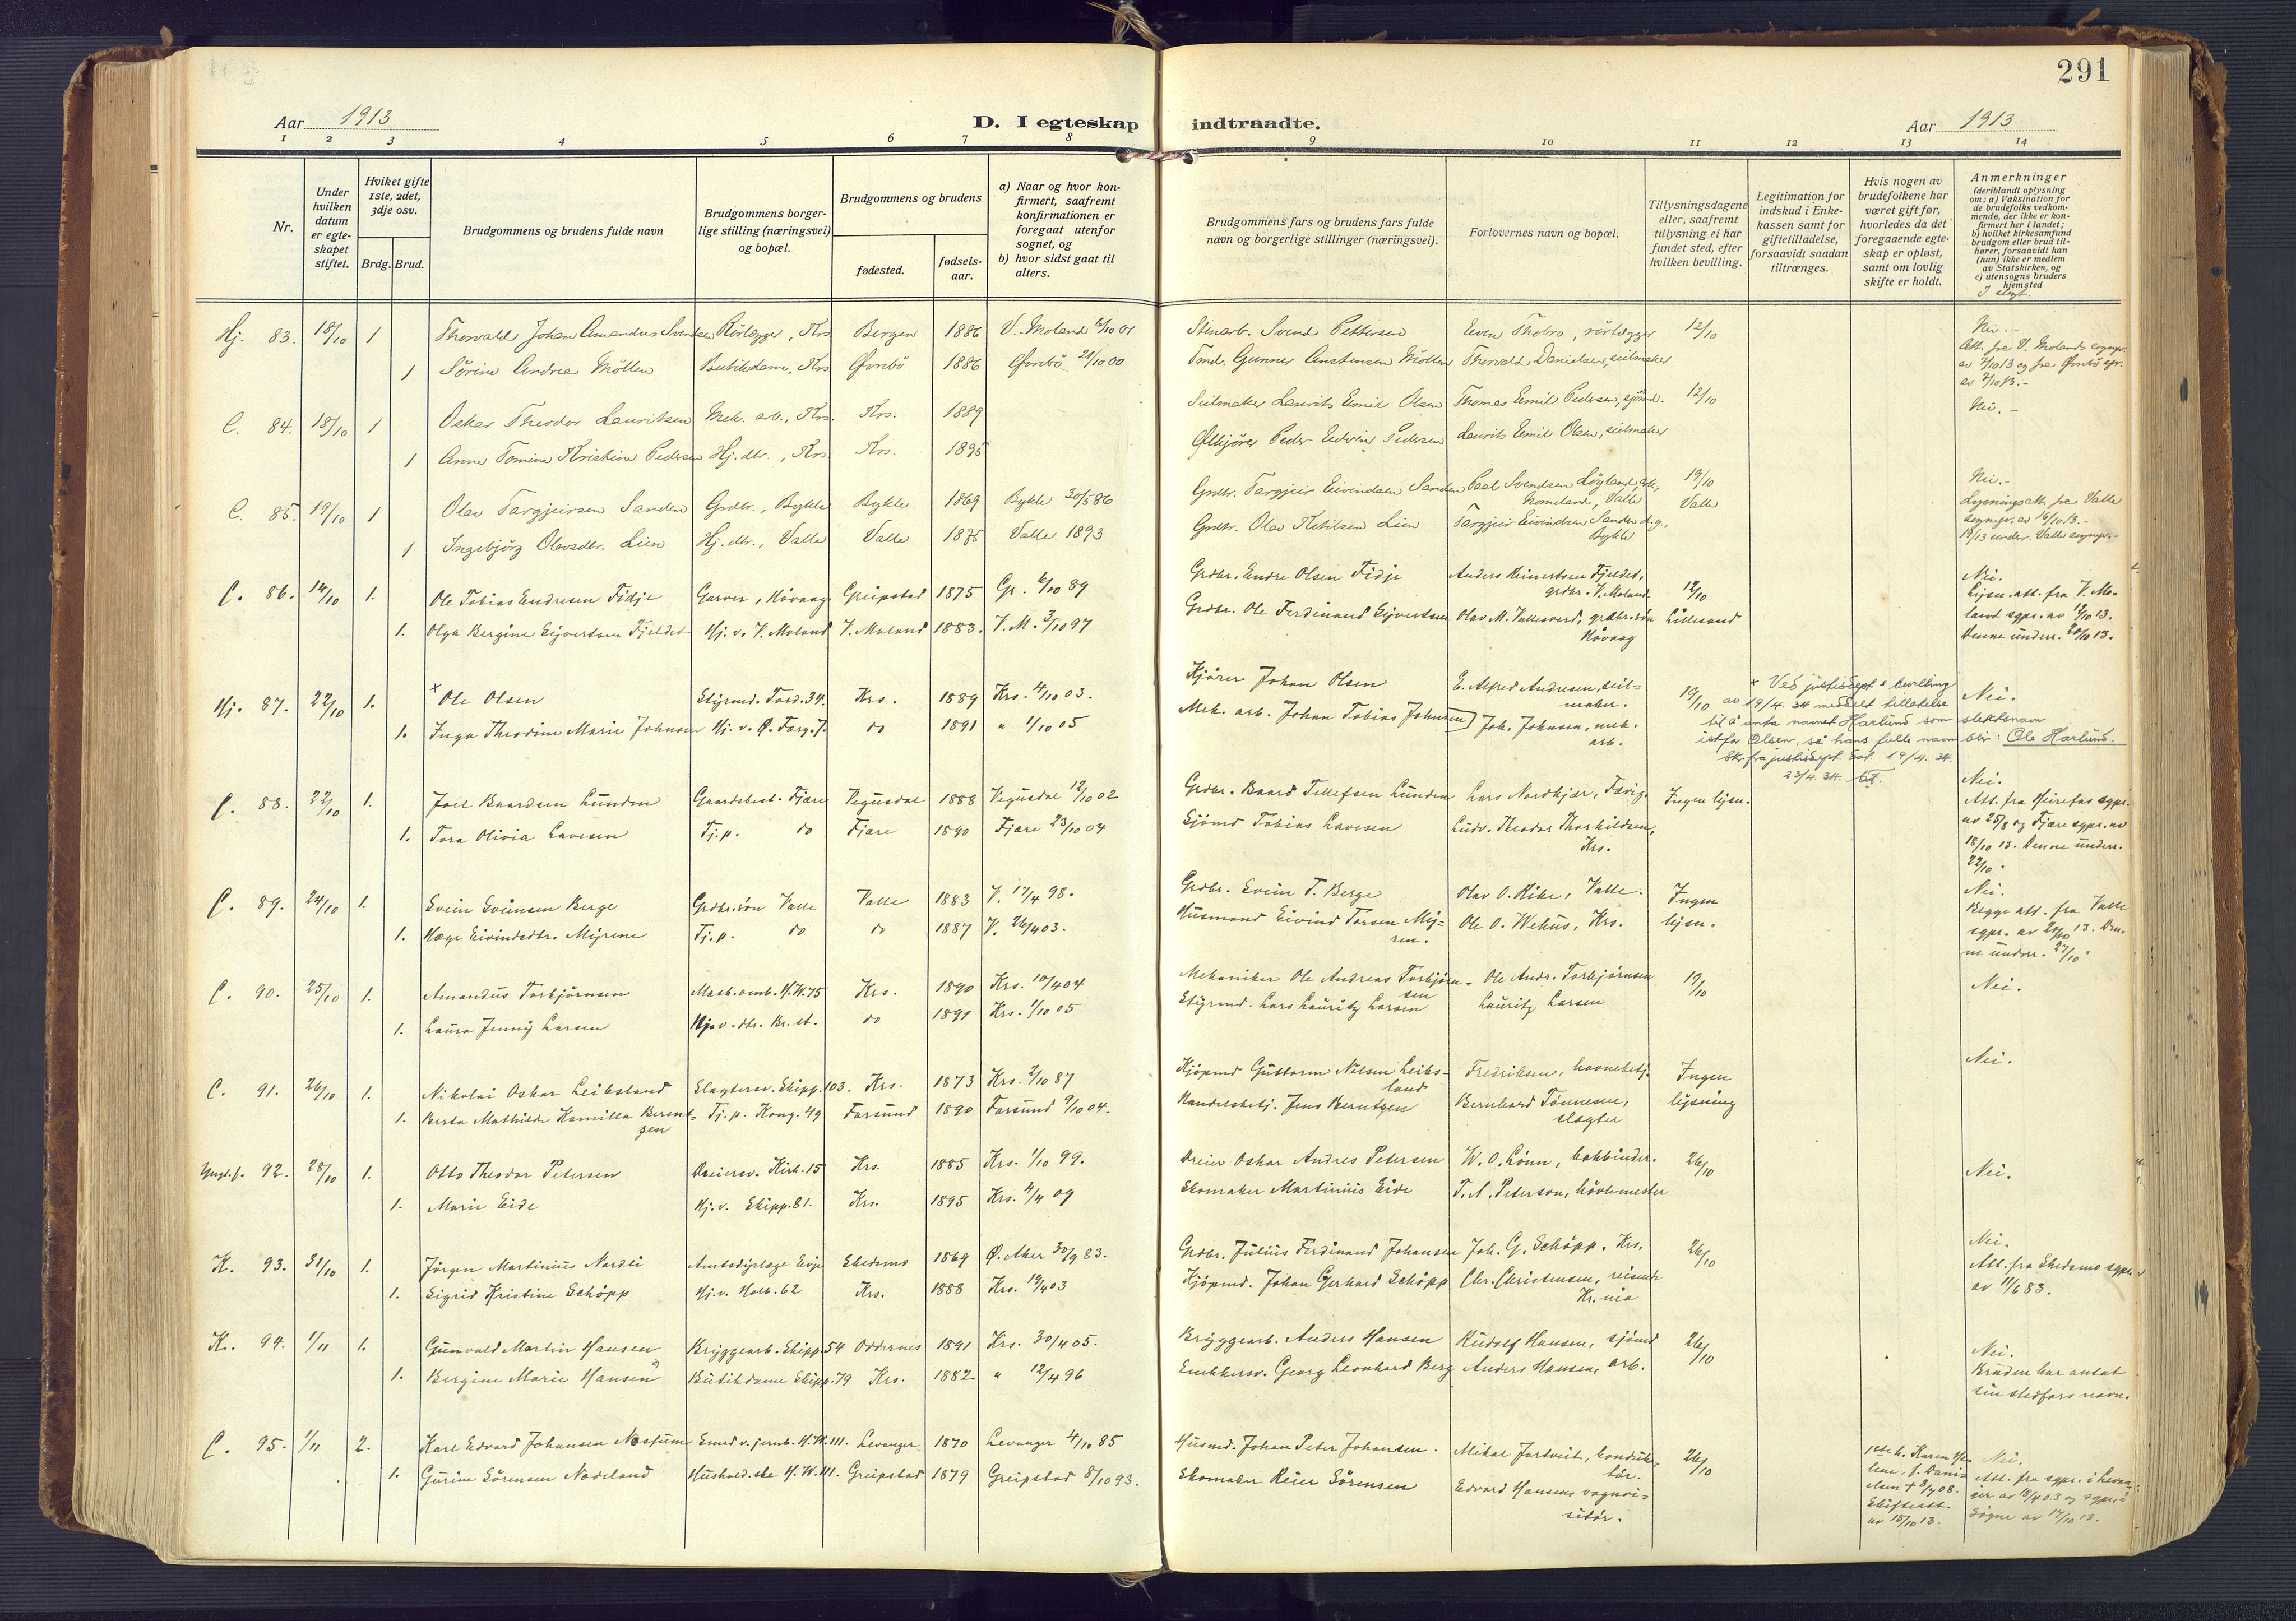 291
Aar 1913
D. I egteskap indtraadte.
Aar 1913
1 2 3 4 5 6 7 8 9 10 11 12 13 14
Nr.
Under hvilken datum er egteskapet stiftet.
Hviket gifte 1ste, 2det, 3dje osv.
Brdg. Brud.
Brudgommens og brudens fulde navn
Brudgommens borgerlige stilling (næringsvei) og bopæl.
Brudgommens og brudens
fødested.
fødselsaar.
a) Naar og hvor konfirmert, saafremt konfirmationen er foregaat utenfor sognet, og
b) hvor sidst gaat til alters.
Brudgommens fars og brudens fars fulde navn og borgerlige stillinger (næringsvei).
Forlovernes navn og bopæl.
Tillysningsdagene eller, saafremt tillysning ei har fundet sted, efter hvilken bevilling.
Legitimation for indskud i Enkekassen samt for giftetilladelse, forsaavidt saadan tiltrænges.
Hvis nogen av brudefolkene har været gift før, hvorledes da det foregaaende egteskap er opløst, samt om lovlig skifte er holdt.
Anmerkninger (deriblandt oplysning om: a) Vaksination for de brudefolks vedkommende, der ikke er konfirmert her i landet; b) hvilket kirkesamfund brudgom eller brud tilhører, forsaavidt han (hun) ikke er medlem av Statskirken, og c) utensogns bruders hjemsted
I slegt.
Hj. 83. 18/10 1 Thorvald Johan Amandus Svendsen Rörlægger, Krs Bergen 1886 V. Moland 6/10 01 Stenarb. Svend Pettersen Even Thobro, rörlægger 12/10 Nei.-
1 Sörine Andrea Möllen Butikdame, Krs Øvrebö 1886 Øvrebö 21/10 00 Tmd. Gunner Anstensen Möllen Thorvald Danielsen, seilmaker Att. fra V. Molands sognepr. av 7/10 13 og fra Øvrebö spr. av 7/10 13.-
C. 84. 18/10 1 Oskar Theodor Lauritsen Mek. arb., Krs. Krs. 1889 Seilmaker Laurits Emil Olsen Thomas Emil Pedersen, sjömd. 12/10 Nei.-
1 Anna Tomine Kristine Pedersen Hj. dtr., Krs Krs. 1895 Ølkjörer Peder Edvin Pedersen Laurits Emil Olsen, seilmaker
C. 85. 19/10 1 Olav Targjeirsen Sanden Grdbr., Bykle Bykle 1869 Bykle 30/5 86 Grdbr. Targjeir Eivindsen Sanden Paal Svendsen Løyland, grdbr., Homeland, Valle 19/10 Valle Nei.-
1 Ingebjörg Olavsdtr. Lien Hj. dtr., Valle Valle 1875 Valle 1893 Grdbr. Olav Ketilsen Lien Targjeir Eivindsen Sanden d.y., Bykle Lysningsatt. fra Valle sognepr. av 16/10 13.- 19/13 underr. Valle sognepr.-
C. 86. 14/10 1. Ole Tobias Endresen Fidje Garver, Høvaag Greipstad 1875 Gr. 6/10 89 Grdbr. Endre Olsen Fidje Anders Reinertsen Fjeldet, grdbr. V. Moland 12/10 Nei.
1. Olga Bergine Sijvertsen Fjeldet Hj. v. V. Moland V. Moland 1883. V. M. 3/10 97 Grdbr. Ole Ferdinand Sijvertsen Olav M. Vallesverd, grdbr. søn Høvaag Lillesand Lijsn. att. fra V. Moland sgpr. av 12/10 13. Denne underr. 20/10 13.
Hj. 87. 22/10 1. × Ole Olsen Styrmd. Tord. 34. Krs. 1889 Krs. 4/10 03. Kjører Johan Olsen E. Alfred Andresen, seilmaker. 19/10 Nei.
1. Inga Theodine Marie Johnsen Hj. v. Ø. Færg. 7. do 1891 " 1/10 05 Mek. arb. Johan Tobias Johnsen Joh. Johnsen, mek. arb.
× Ved justisdept's bevilling
av 19/4. 34 meddelt tillatelse
til å anta navnet Harlund som slektsnavn
istfor Olsen, så hans fulle navn blir: Ole Harlund.
Skr. fra justisdept. dat. 19/4. 34.
23/4. 34.
C. 88. 22/10 1. Joel Baardsen Lunden Gaardsbest. Fjære Vegusdal 1888 Vegusdal 12/10 02 Grdbr. Baard Tellefsen Lunden Lars Nordkjær, Ingen lijsn. Nei.
1. Tora Olivia Lavesen Tj. p. do Fjære 1890 Fjære 23/10 04 Sjömd Tobias Lavesen Ludv. Theodor Thorkildsen, Krs. Att. fra Heirefos sgpr. av 25/8 og Fjære sgpr. av 18/10 13. Denne underr. 22/10.
C. 89. 24/10 1. Svein Sveinsen Berge Grdbr. søn Valle Valle 1883 V. 17/4 98. Grdbr. Svein T. Berge Olav O. Rike, Valle. Ingen lijsn. Nei.
1. Hæge Eivindsdtr. Mijrene Tj. p. do do 1887 V. 26/4 03. Husmand Eivind Torsen Mijren. Ole O. Wehus, Krs. Begge att. fra Valle sgpr. av 20/10 13. Denne underr. 27/10.
C. 90. 25/10 1. Amandus Torbjörnsen Mask. omb. H. W. 75 Krs. 1890 Krs. 10/4 04 Mekaniker Ole Andreas Torbjörnsen Ole Andr. Torbjörnsen 19/10 Nei.
1. Laura Jenny Larsen Hjv. dtr. Kr. st. do 1891 Krs. 1/10 05 Styrmd. Lars Lauritz Larsen Lauritz Larsen
C. 91. 26/10 1. Nikolai Oskar Leibsland Slagtersv. Skipp. 103. Krs. 1873 Krs. 2/10 87 Kjöpmd Guttorm Nilsen Leibsland Fredriksen, havnebetj. Ingen lijsning Nei.
1. Berta Mathilde Kamilla Berentzen Tj. p. Kong. 49 Farsund 1890 Farsund 9/10 04. Handelsbetj. Jens Berntzen Bernhard Tönnesen, slagter
Yngl.f. 92. 28/10 1. Otto Theodor Petersen Dreiersv. Kirk. 15 Krs. 1885 Krs. 1/10 99. Dreier Oskar Andres Petersen W. O. Lönn, bokbinder. 26/10 Nei.
1. Marie Eide Hj. v. Skipp. 81. Krs. 1895 Krs. 4/4 09 Skomaker Martinius Eide T. A. Peterson, hovtemester
K. 93. 31/10 1. Jörgen Martinius Nordli Amtsdijrlæge Evje Skedsmo 1869 Ø. Aker 30/9 83. Grdbr. Julius Ferdinand Johansen Joh. G. Schöpp. Krs. 26/10 Nei.
1. Sigrid Kristine Schöpp Hj. v. Holb. 62 Krs. 1888 Krs. 19/4 03 Kjöpmd. Johan Gerhard Schöpp Chr. Christensen, reisende Kr.nia Att. fra Skedsmo sgpr. av 11/6 83.
K. 94. 1/11 1. Gunvald Martin Hansen Bryggearb. Skipp. 54 Oddernes 1891 Krs. 30/4 05. Bryggearb. Anders Hansen Rudolf Hansen, sjömd 26/10 Nei.
1. Bergine Marie Hansen Butikdame Skipp. 79 Krs. 1882 " 12/4 96 Snekkersv. Georg Leonhard Berg Anders Hansen, arb. Bruden har antat sin stedfars navn.
C. 95. 1/11 2. Karl Edvard Johansen Nossum Smed v. jernb. H. W. 111. Levanger 1870 Levanger 4/10 85 Husmd. Johan Peter Johansen. Mikal Jortveit, konduktör. 26/10 1ste h. Karen Helene, f. Danielsen † 8/7 08. Skifteatt. av 15/10 13. Nei.
1. Gurine Sörensen Nodeland Hushold.ske H. W. 111. Greipstad 1879 Greipstad 8/10 93. Skomaker Reier Sörensen Edvard Hansen, vognvisitör. Att. fra sgpr. i Levanger av 18/4 03 og sgpr. i Søgne av 14/10 13.